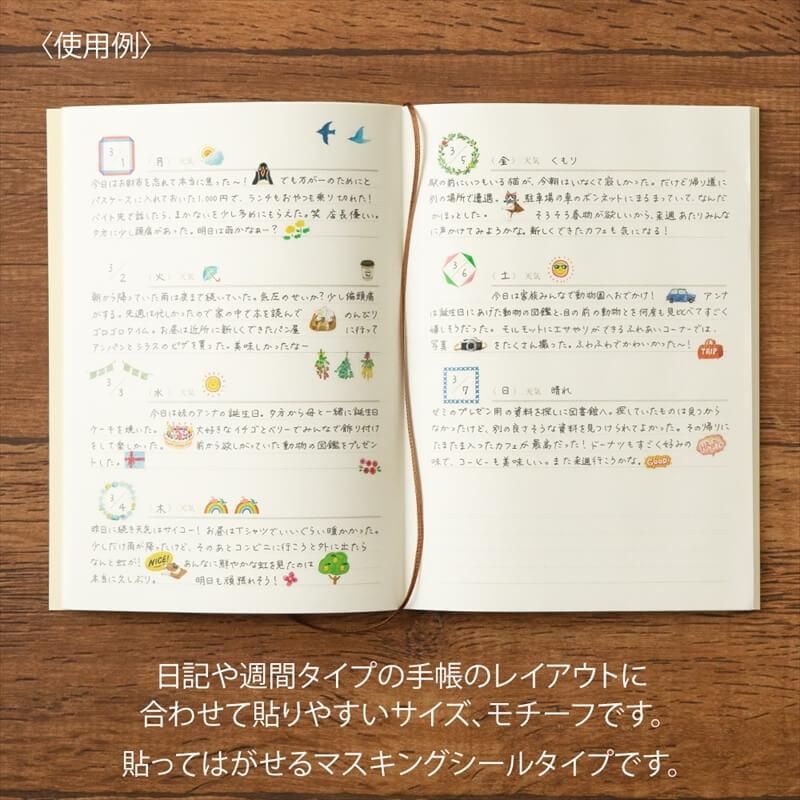 〈使用例〉
3/1 (月) 天気
今日はお財布を忘れて本当に焦った〜! でも万が一のためにと
パスケースに入れておいた1,000円で、ランチもおやつも乗り切れた!
バイト先で話したら、まかないを少し多めにもらえた。笑 店長優しい。
夕方に少し頭痛があった。明日は雨かなぁー?
3/2 (火) 天気
朝から降っていた雨は夜まで続いていた。気圧のせいか?少し偏頭痛
がする。先週は忙しかったので家の中で本を読んで のんびり
ゴロゴロタイム。お昼は近所に新しくできたパン屋 に行って
アンパンとシラスのピザを買った。美味しかったなー
3/3 (水) 天気
今日は妹のアンナの誕生日。夕方から母と一緒に誕生日
ケーキを焼いた。 大好きなイチゴとベリーでみんなで飾り付け
をして楽しかった。 前から欲しがっていた動物の図鑑をプレゼン
トした。
3/4 (木) 天気
昨日に続き天気はサイコー! お昼はTシャツでいいぐらい暖かかった。
少しだけ雨が降ったけど、そのあとコンビニに行こうと外に出たら
なんと虹が! NICE! あんなに鮮やかな虹を見たのは
本当に久しぶり。 明日も頑張れそう!
3/5 (金) 天気 くもり
駅の前にいつもいる猫が、今朝はいなくて寂しかった。だけど帰り道に
別の場所で遭遇。駐車場の車のボンネットにまるまっていて、なんだ
かほっとした。 そろそろ春物が欲しいから、来週あたりみんな
に声かけてみようかな。新しくできたカフェも気になる!
3/6 (土) 天気
今日は家族みんなで動物園へおでかけ! アンナ
は誕生日にあげた動物の図鑑と、目の前の動物とを何度も見比べてすごく
嬉しそうだった。 モルモットにエサやりができるふれあいコーナーでは、
写真 をたくさん撮った。ふわふわでかわいかった〜! TRIP
3/7 (日) 天気 晴れ
ゼミのプレゼン用の資料を探しに図書館へ。探していたものは見つから
なかったけど、別の良さそうな資料を見つけられてよかった。その帰りに
たまたま入ったカフェが最高だった! ドーナツもすごく好みの
味で、コーヒーも美味しい。また来週行こうかな。 GOOD!
日記や週間タイプの手帳のレイアウトに
合わせて貼りやすいサイズ、モチーフです。
貼ってはがせるマスキングシールタイプです。